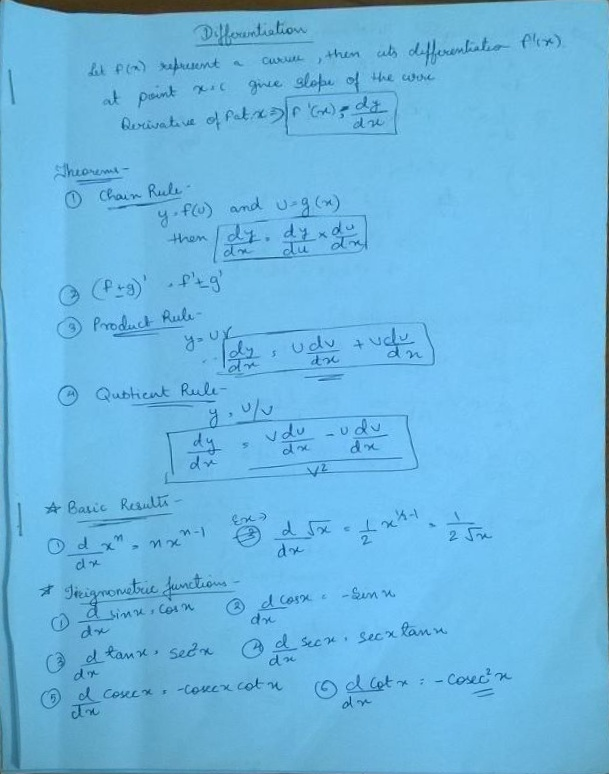 Differentiation
Let f(x) represent a curve, then its differentiation f'(x)
at point x=c gives slope of the curve
Derivative of f at x ⇒ f'(x) = dy/dx
Theorems -
① Chain Rule -
y = f(u) and u = g(x)
then dy/dx = dy/du × du/dx
② (f ± g)' = f' ± g'
③ Product Rule -
y = uv
∴ dy/dx = u dv/dx + v du/dx
④ Quotient Rule -
y = u/v
dy/dx = (v du/dx - u dv/dx)/v²
* Basic Results -
① d/dx xⁿ = n xⁿ⁻¹ Ex → d/dx √x = 1/2 x^(1/2-1) = 1/(2√x)
* Trignometric functions -
① d/dx sinx = cosx ② d/dx cosx = -sinx
③ d/dx tanx = sec²x ④ d/dx secx = secx tanx
⑤ d/dx cosecx = -cosecx cotx ⑥ d/dx cotx = -cosec²x